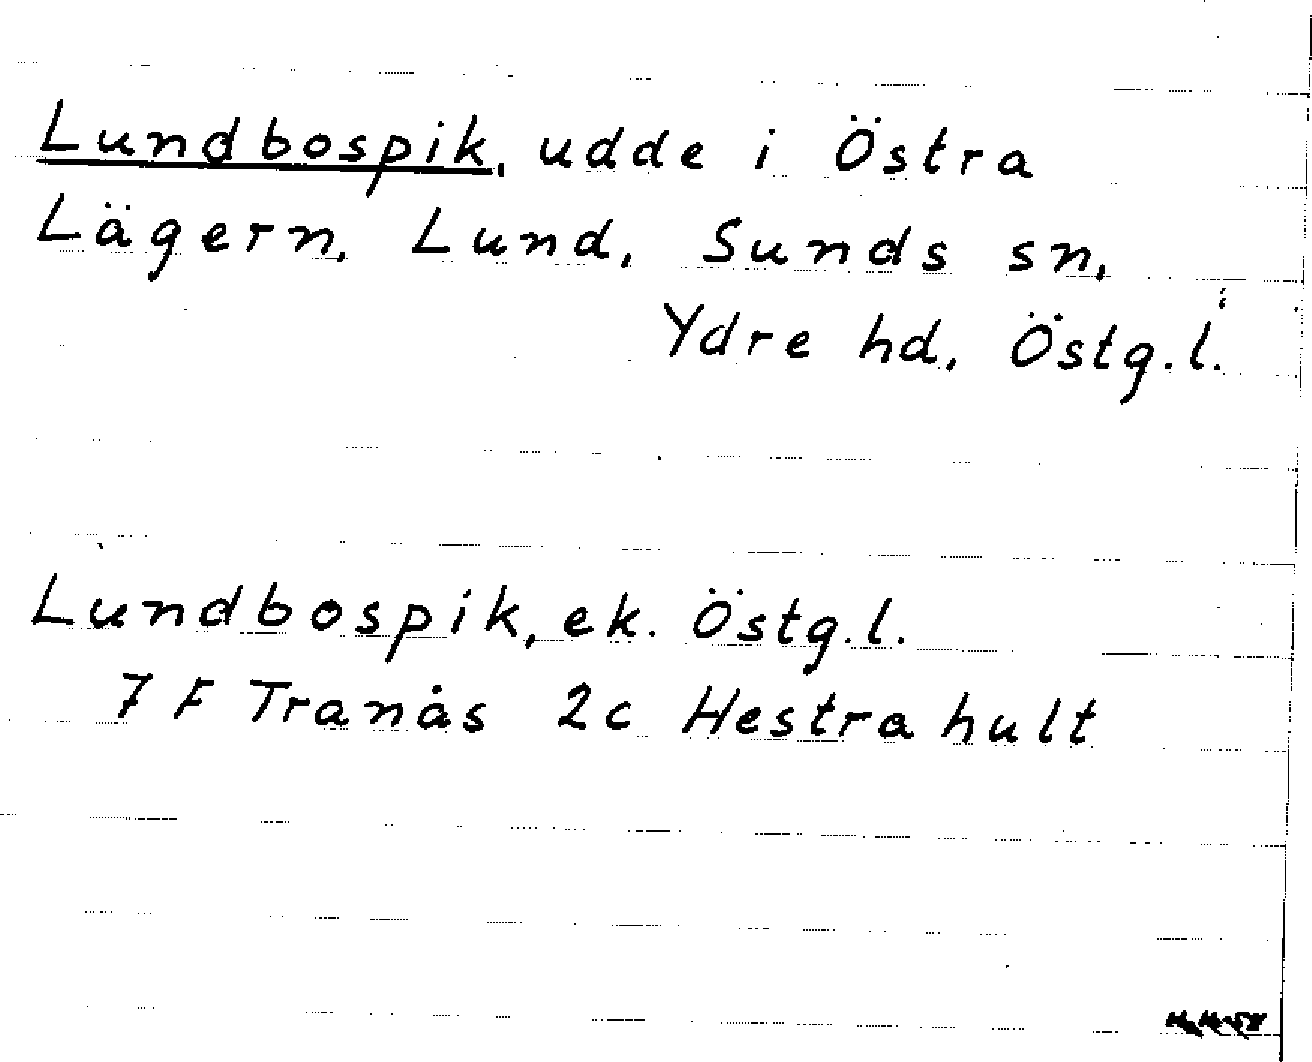 Lundbospik, udde i Östra
Lägern, Lund, Sunds sn,
Ydre hd, Östg.l.
Lundbospik, ek. Östg.l.
7 F Tranås 2c Hestrahult